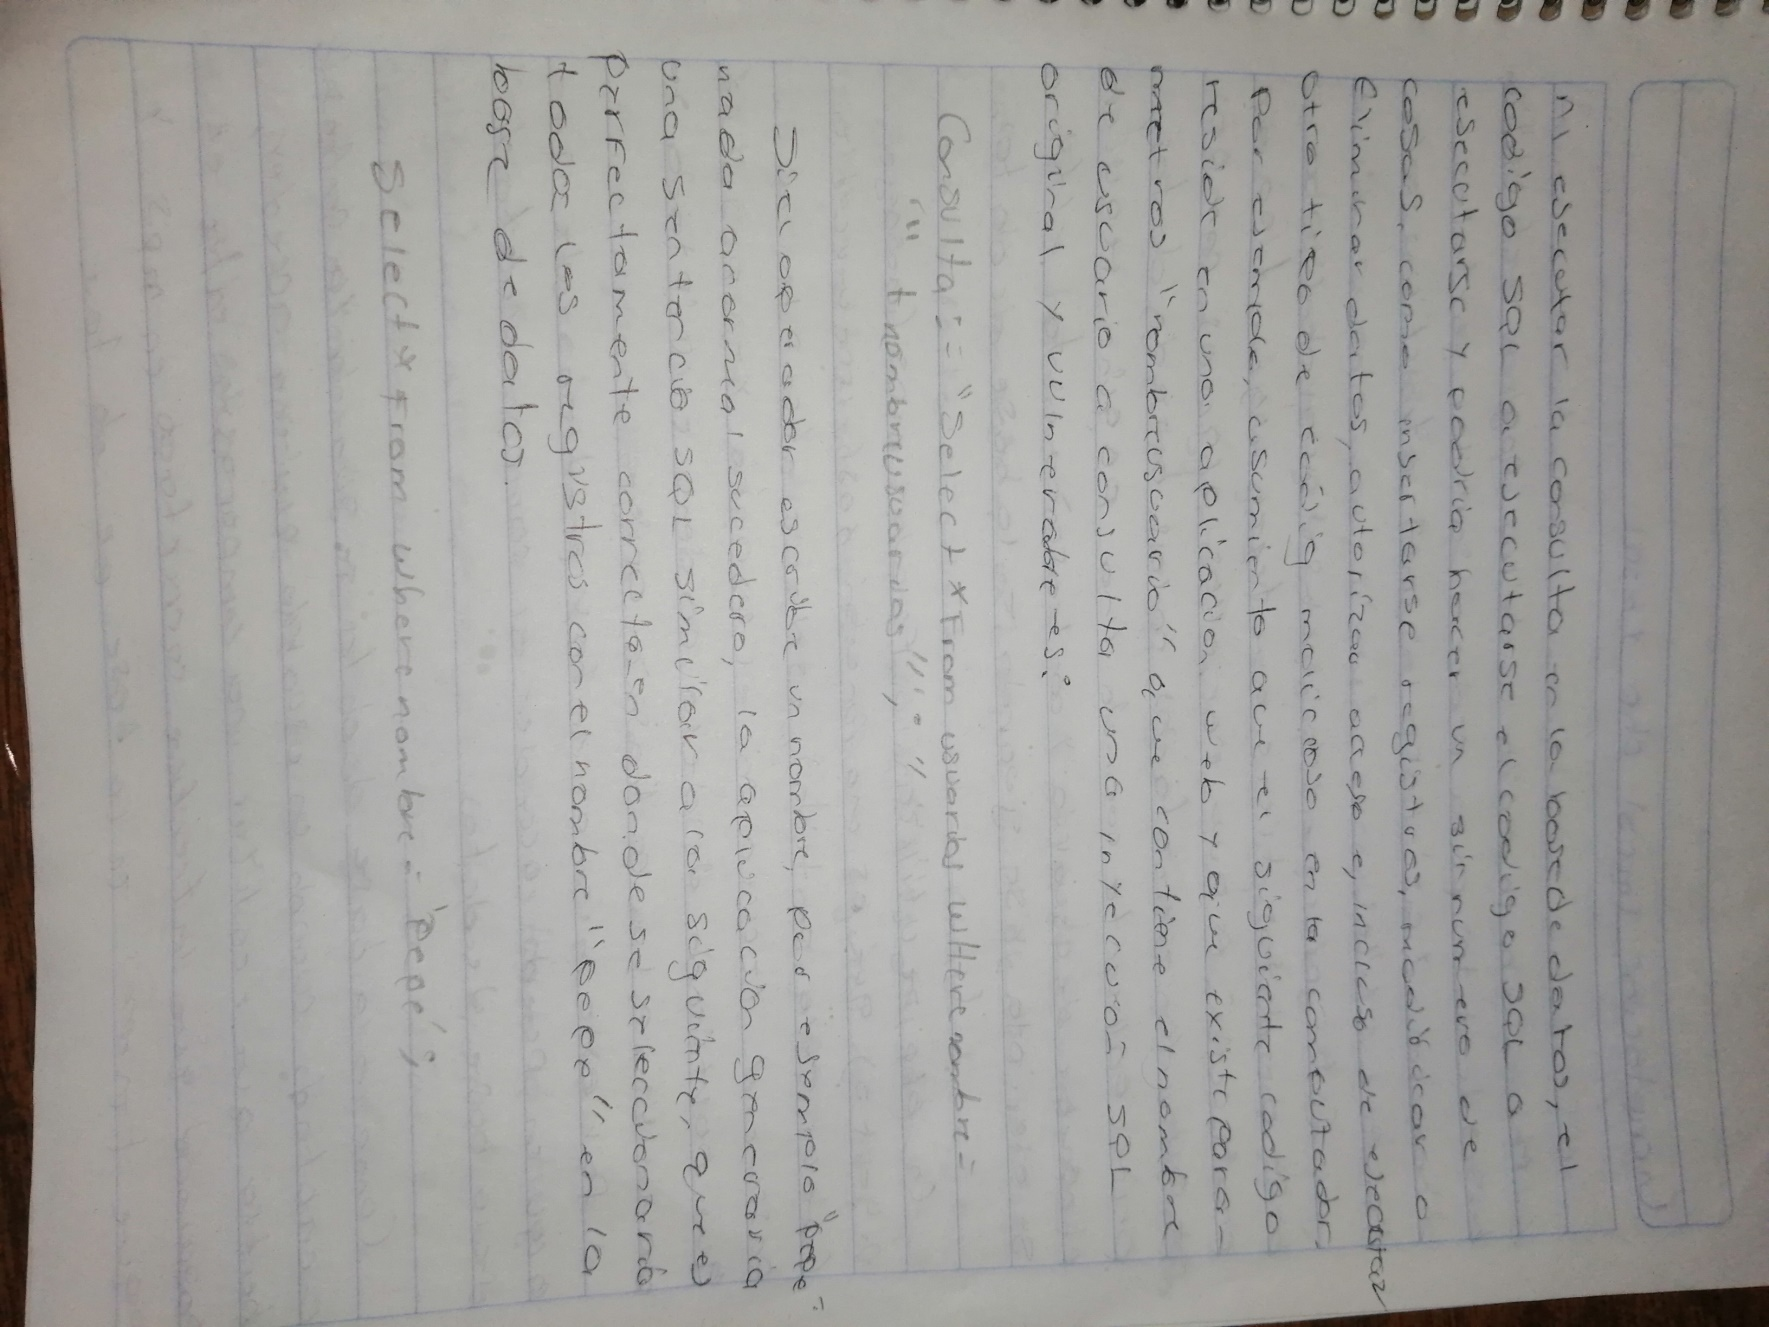 Al esecutar la consulta en la base de datos, el
codigo SQL a esecutarse el codigo SQL a
esecutarse y podria hacer un sinnumero de
cosas, como insertarse registros, modificar o
eliminar datos, autorizar acceso e, incluso de ejecutar
otro tipo de codig malicioso en la computador.
Por esemplo, asumiento que el siguiente codigo
reside en una aplicacion web y que existe para-
metros "nombreusuario" que contiene el nombre
de usuario a consulta una inyecuon SQL
original y vulnerable es:
Consulta:= "Select * From usuarios where nombre=
"" + nombreusuarios, "";"
Si el operador escribe un nombre, por esemplo "pepe"
nada anormal sucedera, la aplicacion generaria
una sentencia SQL similar a la siguiente, que es
perfectamente correcta en donde se seleccionaria
todos los registros con el nombre "pepe" en la
base de datos.
Select * From where nombre = 'pepe';